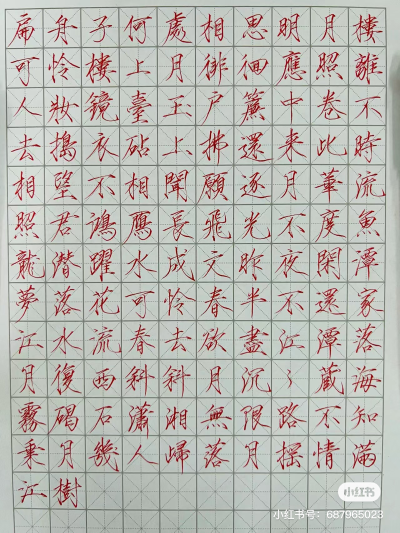 扁舟子何處相思明月樓
可怜樓上月徘徊應照離
人妝鏡臺玉户簾中卷不
去搗衣砧上拂還来此時
相望不相聞願逐月華流
照君鴻鴈長飛光不度魚
龍潜躍水成文昨夜閑潭
夢落花可怜春半不還家
江水流春去欲盡江潭落
月復西斜斜月沉〻藏海
霧碣石瀟湘無限路不知
乘月幾人歸落月摇情滿
江樹
小红书
小红书号：687965023